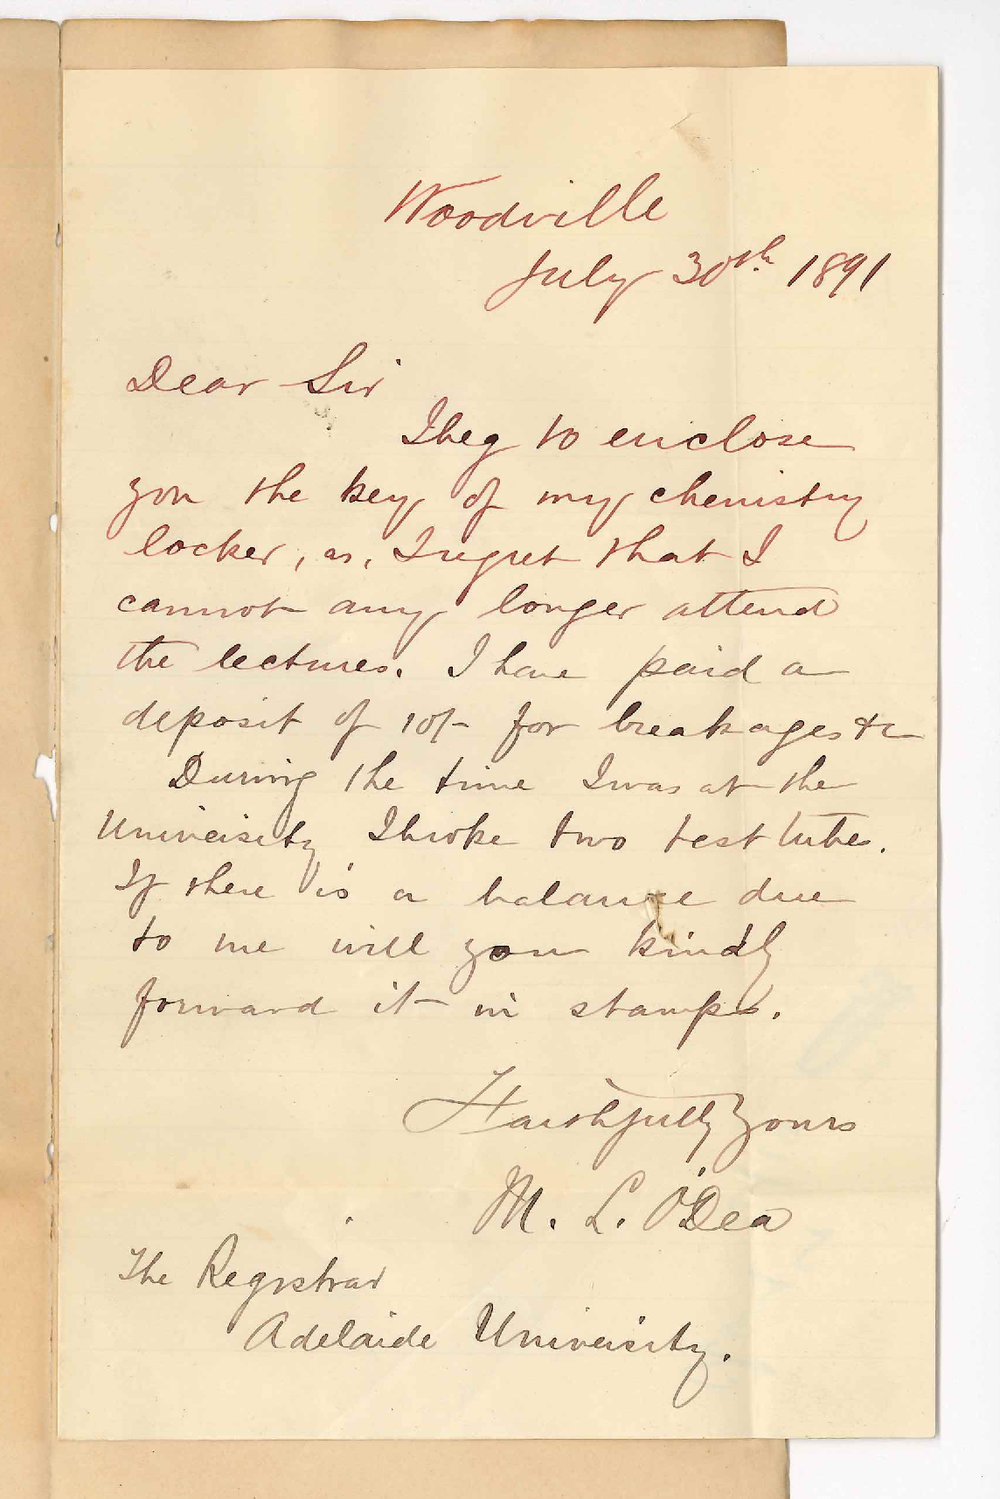 Woodville
July 30th 1891
Dear Sir
I beg to enclose
you the key of my chemistry
locker, as, I regret that I
cannot any longer attend
the lectures. I have paid a
deposit of 10/- for breakages &c
During the time I was at the
University I broke two test tubes.
If there is a balance due
to me will you kindly
forward it in stamps.
Faithfully yours
M. L. O'Dea
The Registrar
Adelaide University.